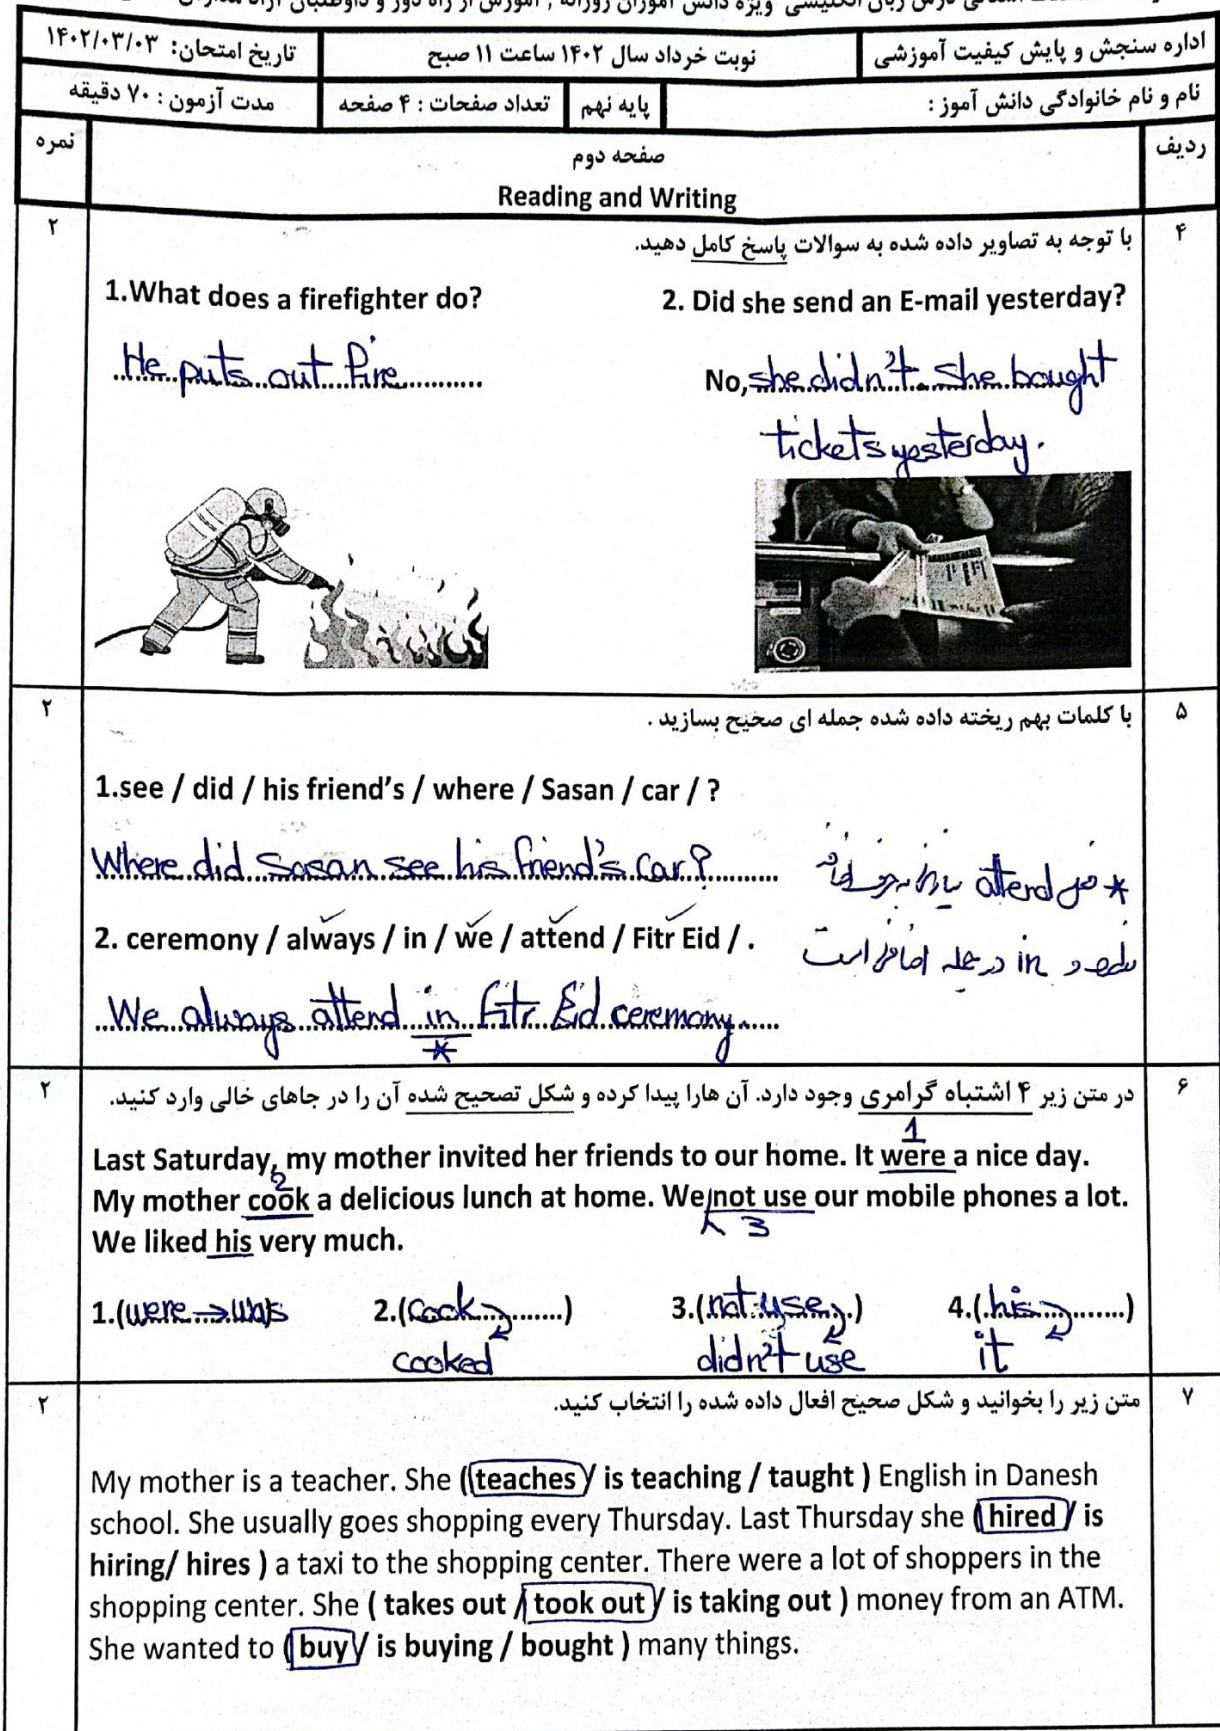 اداره سنجش و پایش کیفیت آموزشی
نوبت خرداد سال ۱۴۰۲ ساعت ۱۱ صبح
تاریخ امتحان: ۱۴۰۲/۰۳/۰۳
نام و نام خانوادگی دانش آموز :
پایه نهم
تعداد صفحات : ۴ صفحه
مدت آزمون : ۷۰ دقیقه
ردیف
صفحه دوم
نمره
Reading and Writing
۴
با توجه به تصاویر داده شده به سوالات پاسخ کامل دهید.
۲
1.What does a firefighter do?
2. Did she send an E-mail yesterday?
He puts out fire
No, she didn't. She bought
tickets yesterday.
۵
با کلمات بهم ریخته داده شده جمله ای صحیح بسازید .
۲
1.see / did / his friend's / where / Sasan / car / ?
Where did Sasan see his friend's car?
* فعل attend نیاز به حرف اضافه
2. ceremony / always / in / we / attend / Fitr Eid / .
و in در جمله اضافی است
We always attend in Fitr Eid ceremony
*
۶
در متن زیر ۴ اشتباه گرامری وجود دارد. آن هارا پیدا کرده و شکل تصحیح شده آن را در جاهای خالی وارد کنید.
۲
1
Last Saturday, my mother invited her friends to our home. It were a nice day.
2
My mother cook a delicious lunch at home. We not use our mobile phones a lot.
3
We liked his very much.
1.(were → was
2.(cook.......)
3.(not use..)
4.(his.......)
cooked
didn't use
it
۷
متن زیر را بخوانید و شکل صحیح افعال داده شده را انتخاب کنید.
۲
My mother is a teacher. She (teaches / is teaching / taught ) English in Danesh
school. She usually goes shopping every Thursday. Last Thursday she ( hired / is
hiring/ hires ) a taxi to the shopping center. There were a lot of shoppers in the
shopping center. She ( takes out / took out / is taking out ) money from an ATM.
She wanted to ( buy / is buying / bought ) many things.